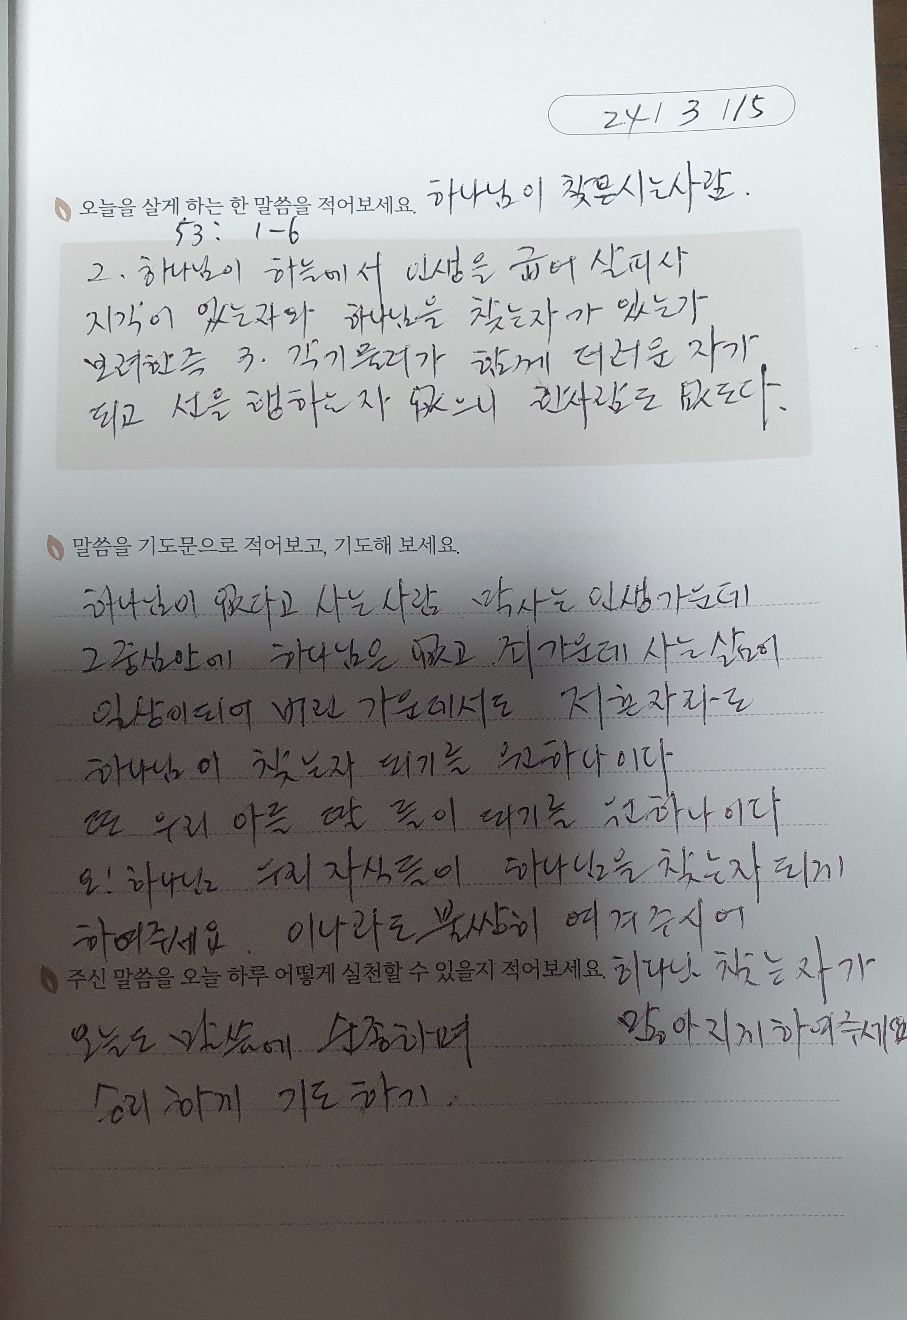 24 1 3 1 15
오늘을 살게 하는 한 말씀을 적어보세요. 하나님이 찾으시는사람.
53: 1-6
2. 하나님이 하늘에서 인생을 굽어 살피사
지각이 있는자와 하나님을 찾는자가 있는가
보려한즉 3. 각기물러가 함께 더러운 자가
되고 선을 행하는자 없으니 한사람도 없도다.
말씀을 기도문으로 적어보고, 기도해 보세요.
하나님이 없다고 사는사람 막사는 인생가운데
그중심안에 하나님은 없고 죄가운데 사는삶이
일상이되어 버린 가운데서도 저혼자라도
하나님이 찾는자 되기를 원하나이다
또 우리 아들 딸 들이 되기를 원하나이다
오! 하나님 우리 자식들이 하나님을 찾는자 되게
하여주세요. 이나라도 불쌍히 여겨주시어
주신 말씀을 오늘 하루 어떻게 실천할 수 있을지 적어보세요. 하나님 찾는자가
오늘도 말씀에 순종하며 많아지게하여주세요
승리하게 기도하기.